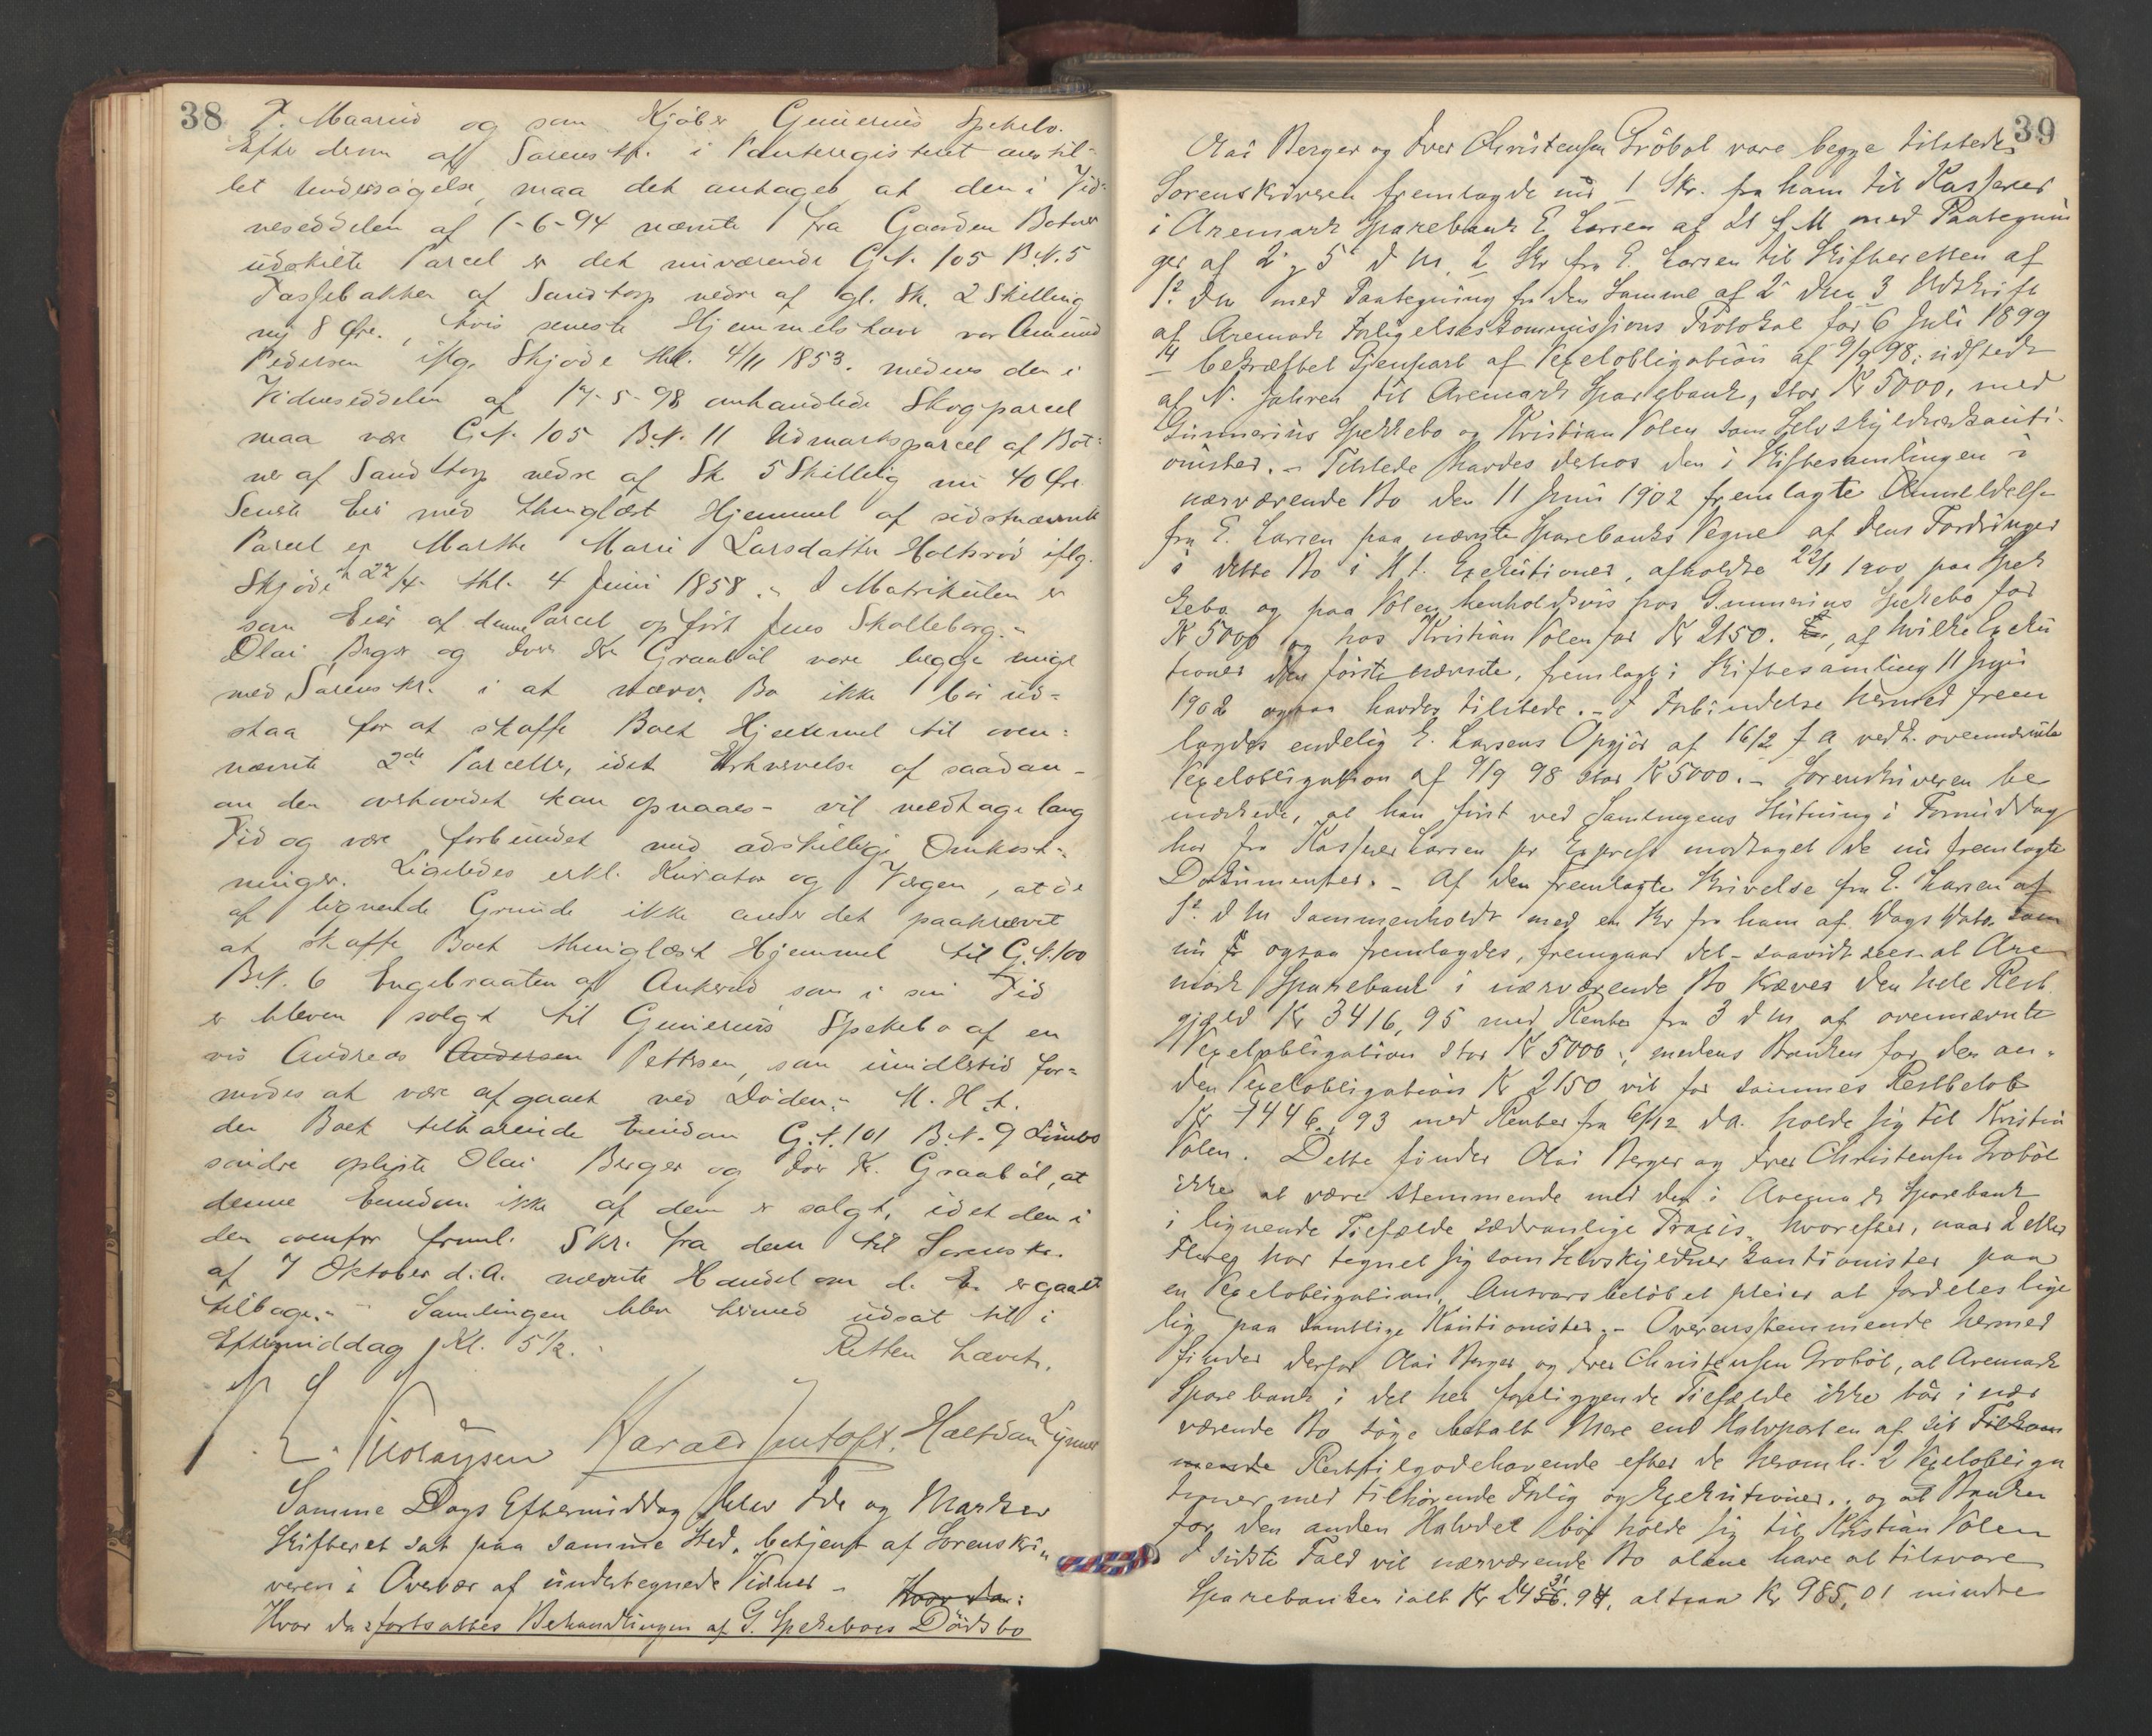 38
P. Maarud og som Kjøber Gunerius Spekebo.
Efter den af Sorenskr. i Panteregisteret anstil-
let Undersøgelse, maa det antages at den i Vid-
neseddelen af 1-6-94 nævnte fra Gaarden Botner
udskilte Parcel er det nuværende G.N. 105 B.N. 5
Tassebakken af Sandtorp nedre af gl. Sk. 2 Skilling
ny 8 Øre., hvis seneste Hjemmelshaver var Amund
Pedersen iflg. Skjøde thl. 4/11 1853. medens den i
Vidneseddelen af 19-5-98 omhandlede Skogparcel
maa være G.N. 105 B.N. 11 Udmarksparcel af Bot-
ner af Sandtorp nedre af Sk. 5 Skilling nu 40 Øre
Senste Eier med thinglæst Hjemmel af sidstnævnte
Parcel er Marthe Marie Larsdatter Holtsrød iflg.
Skjøde 27/4 thl. 4 Juni 1858. - I Matrikulen er
som Eier af denne Parcel opført Jens Skolleborg.-
Olai Berger og Iver Kr Graabøl vare begge enige
med Sorenskr. i at nærv. Bo ikke bør ud-
staa for at skaffe Boet Hjemmel til oven-
nævnte 2de Parceller, idet Erhvervelse af saadan-
om den overhovedet kan opnaaes- vil medtage lang
Tid og være forbundet med adskillige Omkost-
ninger. Ligeledes erkl. Kurator og Vergen, at de
af lignende Grunde ikke anser det paakrævet
at skaffe Boet thinglæst Hjemmel til G.N. 100
B.N. 6 Engebraaten af Ankerud som i sin Tid
er bleven solgt til Gunerius Spekebo af en
vis Andreas Andersen Pettersen, som imidlertid for-
modes at være afgaaet ved Døden.- M. H. t.
den Boet tilhørende Eiendom G.N. 101 B.N. 9 Limbo
søndre oplyste Olai Berger og Iver Kr. Graabøl, at
denne Eiendom ikke af dem er solgt, idet den i
den ovenfor freml. Skr. fra dem til Sorenskr.
af 7 Oktober d. A. nævnte Handel om d. E. er gaaet
tilbage.- Samlingen blev hermed udsat til i
Eftermiddag Kl. 5 1/2. Retten hævet.
Nicolaysen Harald Halfdan
Samme Dags Eftermiddag blev Ide og Marker
Skifteret sat paa samme Sted, betjent af Sorenskri-
veren i Overvær af undertegnede Vidner - Hvor da:
Hvor da: fortsattes Behandlingen af G. Spekeboes Dødsbo
39
Olai Berger og Iver Christensen Gröbøl vare begge tilstede
Sorenskriveren fremlagde nu 1 Skr. fra ham til Kasserer
i Aremark Sparebank E Larsen af 21 f M med Paategnin
ger af 2 og 5 d M, 2 Skr fra E. Larsen til Skifteretten af
12 dM med Paategning fra den Samme af 2 dM 3 Udskrift
af Aremark Forligelseskommissions Protokol for 6 Juli 1899
14 bekræftet Gjenpart af Vexelobligation af 9/9 98: udstedt
af N. Johnsen til Aremark Sparebank, stor Kr 5000, med
Gunnerius Spekkebo og Kristian Volen som Selvskyldnerkauti-
onister. - Tilstede havdes derhos den i Skiftesamlingen i
nærværende Bo den 11 Juni 1902 fremlagte Anmeldelse
fra E. Larsen paa nævnte Sparebanks Vegne af dens Fordringer
i dette Bo i H. t. Exekutioner, afholdte 22/1 1900 paa Spek
kebo og paa Volen henholdsvis hos Gunnerius Spekebo for
Kr 5000 og hos Kristian Volen for Kr 2150. , af hvilke Exeku
tioner den førstenævnte, fremlagt i Skiftesamling 11 Juni
1902 ogsaa havdes tilstede. - I Forbindelse hermed frem
lagdes endelig E. Larsens Opgjør af 16/2 f a vedk. ovennævnte
Vexelobligation af 9/9 98 stor Kr 5000. - Sorenskriveren be
mærkede, at han først ved Samlingens Slutning i Formiddag
har fra Kasserer Larsen pr Express modtaget de nu fremlagte
Dokumenter. - Af den fremlagte Skrivelse fra E. Larsen af
12 d M sammenholdt med en Skr fra ham af Dags Dato som
nu ogsaa fremlagdes, fremgaar det - saavidt sees - at Are
mark Sparebank i nærværende Bo kræver den hele Rest
gjæld Kr 3416,95 med Renter fra 3 d M af ovennævnte
Vexelobligation stor Kr 5000:, medens Banken for den an-
den Vexelobligation Kr 2150 vil for sammes Restbeløb
Kr 1446.93 med Renter fra 6/12 d.a. holde sig til Kristian
Volen. Dette finder Olai Berger og Iver Christensen Grøbøl
ikke at være stemmende med den i Aremark Sparebank
i lignende Tilfælde sædvanlige Praxis, hvorefter, naar 2 eller
Flere har tegnet sig som Selvskyldnerkautionister paa
en Vexelobligation, Ansvarsbeløbet pleier at fordeles lige
lig paa samtlige Kautionister. - Overensstemmende hermed
finder derfor Olai Berger og Iver Christensen Grøbøl, at Aremark
Sparebank i det her foreliggende Tilfælde ikke bør i nær
værende Bo søge betalt Mere end Halvparten af sit Tilkom
mende Resttilgodehavende efter de heromh. 2 Vexelobliga
tioner med tilhørende Forlig og Exekutioner., og at Banken
for den anden Halvdel bør holde sig til Kristian Volen
I sidste Fald vil nærværende Bo alene have at tilsvare
Sparebanken ialt Kr 2431.94, altsaa Kr 985,01 mindre